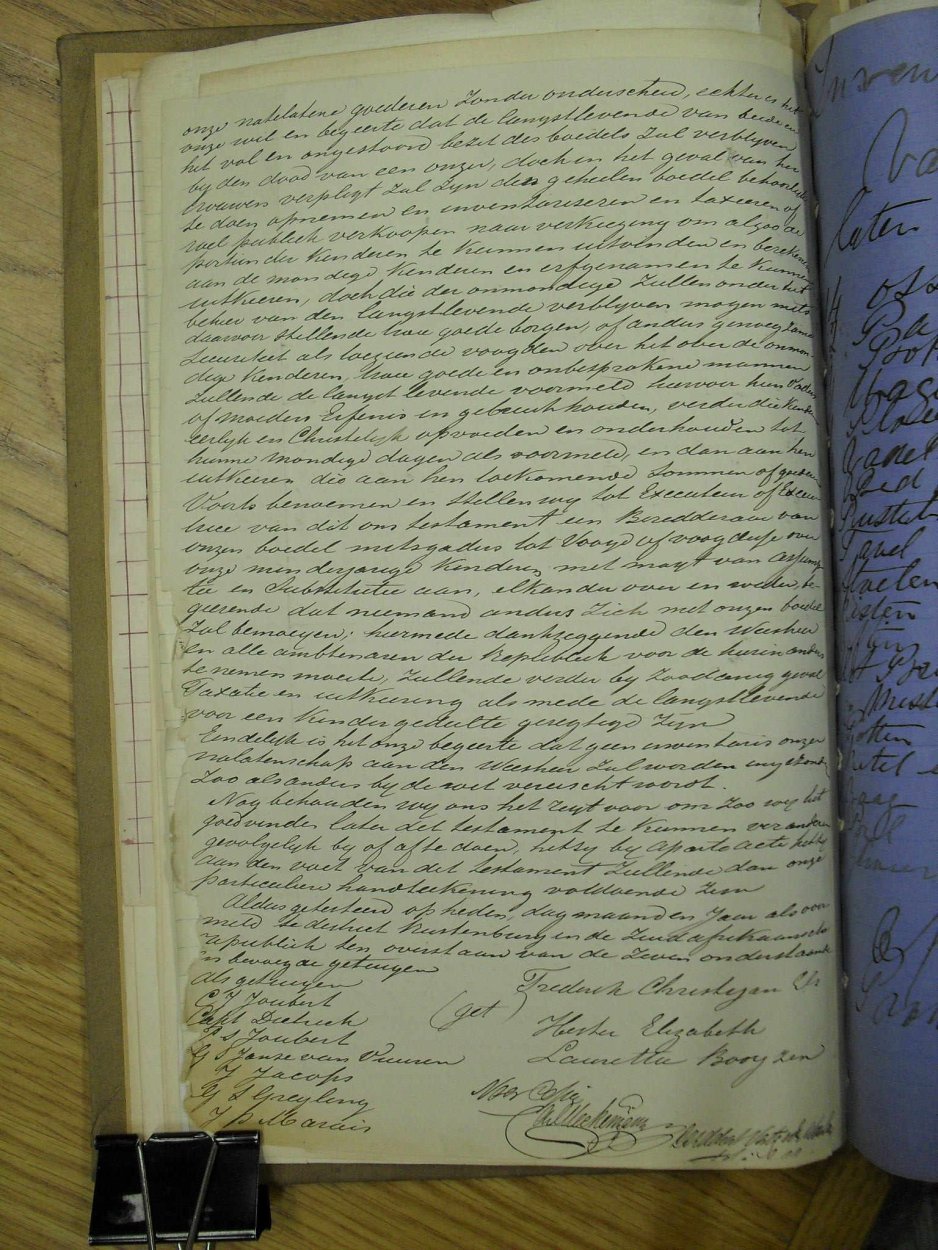 onze natelatene goederen Zonder onderscheid, echter is het
onze wil en begeerte dat de langstlevende van beide in
het vol en ongestoord bezit des boedels Zal verblyven
by den dood van een onzer, doch in het geval van her
trouwen verpligt Zal Zyn den geheelen boedel behoorlyk
te doen opnemen en inventariseren en taxeeren of
wel publiek verkoopen naar verkiezing om alzoo de
portie der Kinderen te Kunnen uitvinden en berekenen
aan de mondige Kinderen en erfgenamen te Kunnen
uitkeeren, doch die der onmondige Zullen onder het
beheer van den langstlevende verblyven mogen mits
daarvoor stellende twee goede borgen, of andere genoegzame
Securiteit als toeziende voogden over het over de onmon
dige Kinderen, twee goede en onbesprokene mannen
Zullende de langst levende voormeld hiervoor hun Vaders
of moeders Erfenis in gebruik houden, verder die Kinderen
eerlyk en Christelyk opvoeden en onderhouden tot
hunne mondige dagen als voormeld, en dan aan hen
uitkeeren die aan hen toekomende Sommen of goederen
Voorts benoemen en stellen wy tot Executeur of Execu
trice van dit ons testament en Beredderaar van
onzen boedel mitsgaders tot Voogd of voogdesse over
onze minderjarige Kinderen, met magt van assump
tie en Substitutie aan, elkander over en weder, be
geerende dat niemand anders Zich met onzen boedel
Zal bemoeyen; hiermede dankzeggende den Weesheer
en alle ambtenaren der Republiek voor de hierin anders
te nemen moeite, Zullende verder by Zoodanig geval
Taxatie en uitkeering als mede de langstlevende
voor een Kinder gedeelte geregtigd Zyn
Eindelyk is het onze begeerte dat geen inventaris onzer
nalatenschap aan den Weesheer Zal worden ingezonden
Zoo als anders by de wet vereischt wordt.
Nog behouden wy ons het regt voor om Zoo wy het
goedvinden later dit testament te Kunnen veranderen
gevolgelyk by of af te doen, hetzy by aparte acte hetzy
aan den voet van dit testament Zullende dan onze
particuliere handteekening voldoende Zyn
Aldus getesteerd op heden, dag maand en Jaar als over
meld te district Rustenburg in de Zuid afrikaansche
republiek ten overstaan van de Zeven onderstaande
in bevoegde getuigen
als getuigen
G J Joubert
Capt Dietrich
P S Joubert
G S Janse van Vuuren
J Jacops
G S Greyling
J P Marais
(get)
Frederik Christiaan Sr
Hester Elizabeth
Lauretta Booyzen
Voor Copie